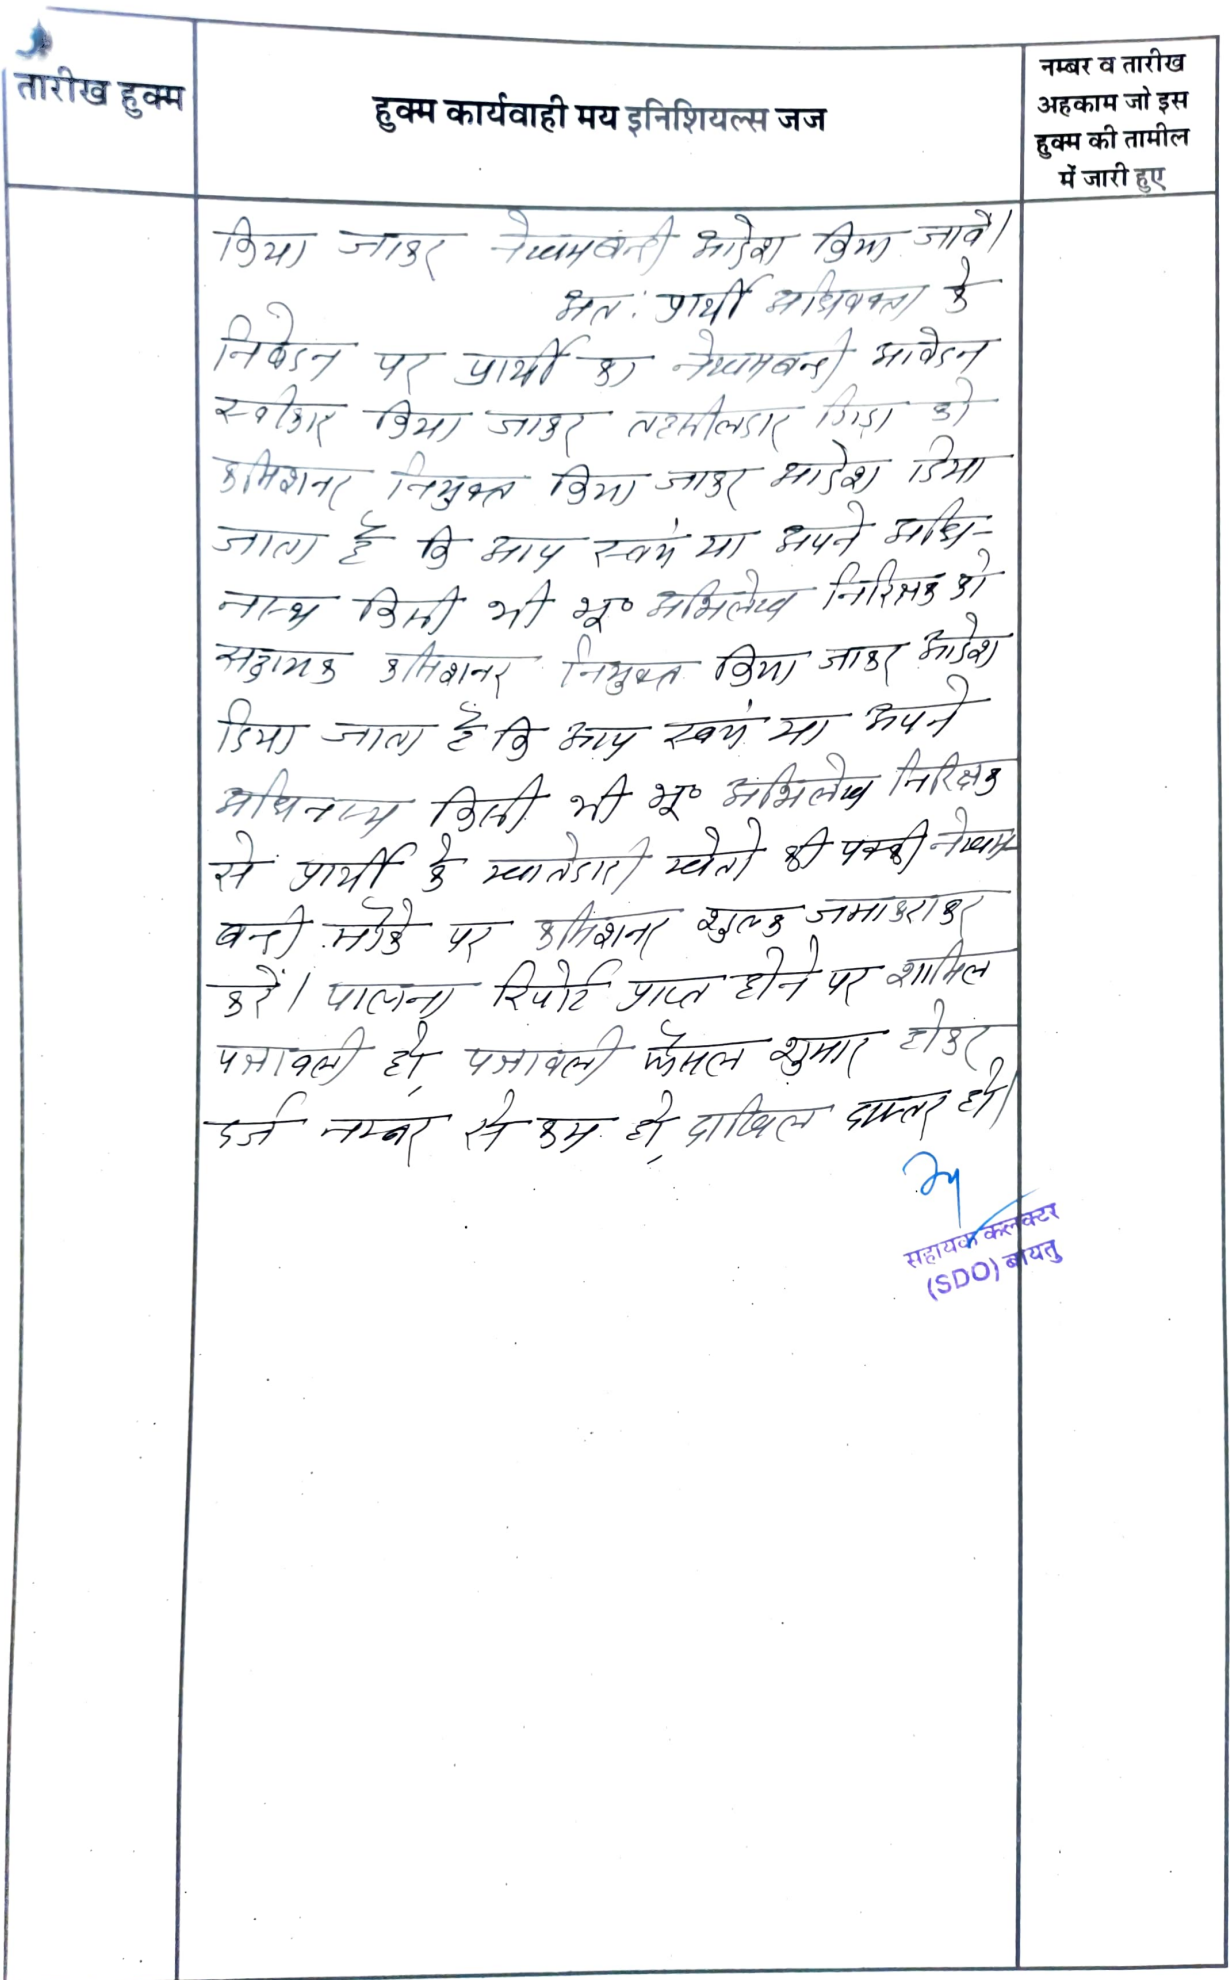 तारीख हुक्म
हुक्म कार्यवाही मय इनिशियल्स जज
नम्बर व तारीख
अहकाम जो इस
हुक्म की तामील
में जारी हुए
किया जाकर नेखमबन्दी आदेश किया जावें।
अतः प्रार्थी अधिवक्ता के
निवेदन पर प्रार्थी का नेखमबन्दी आवेदन
स्वीकार किया जाकर तहसीलदार गिड़ा को
कमिशनर नियुक्त किया जाकर आदेश दिया
जाता है कि आप स्वयं या अपने अधि-
नस्थ किसी भी भू० अभिलेख निरिक्षक को
सहायक कमिशनर नियुक्त किया जाकर आदेश
दिया जाता है कि आप स्वयं या अपने
अधिनस्थ किसी भी भू० अभिलेख निरिक्षक
से प्रार्थी के खातेदारी खेतो की पक्की नेखम-
बन्दी मौके पर कमिशनर शुल्क जमा कराकर
करें। पालना रिपोर्ट प्राप्त होने पर शामिल
पत्रावली हो, पत्रावली फैसल शुमार होकर
दर्ज नम्बर से कम हो, दाखिल दफ्तर हो।
सहायक कलक्टर
(SDO) बायतु